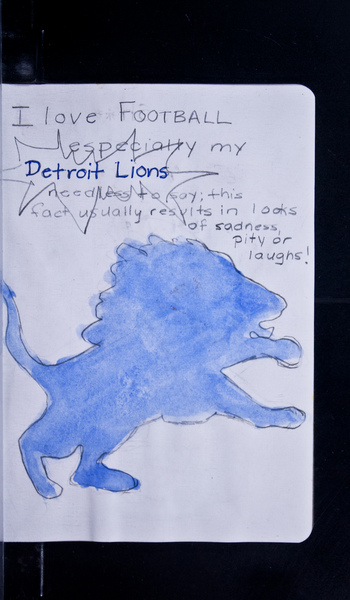 I love FOOTBALL
especially my
Detroit Lions
needless to say; this
fact usually results in looks
of sadness,
pity or
laughs!